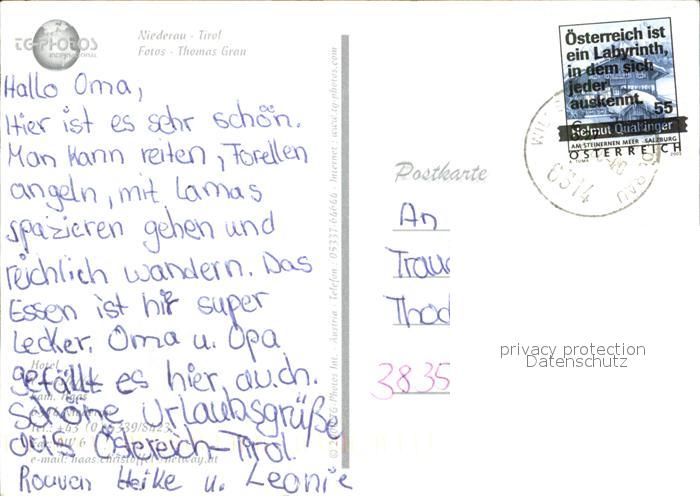 TG-PHOTOS
INTERNATIONAL
Niederau - Tirol
Fotos - Thomas Grau
Hallo Oma,
Hier ist es sehr schön.
Man kann reiten, Forellen
angeln, mit Lamas
spazieren gehen und
reichlich wandern. Das
Essen ist hir super
Lecker. Oma u. Opa
gefällt es hier, auch.
schöne Urlaubsgrüße
aus Östereich-Tirol.
Rouven Heike u. Leonie
Hotel
Fam. Haas
e-mail: haas.christoffel@netway.at
© TG-Photos Int. Austria - Telefon 05337-66660 - Internet: www.tg-photos.com
Postkarte
An
Trau
Thod
3835
Österreich ist
ein Labyrinth,
in dem sich
jeder
auskennt.
55
Helmut Qualtinger
AM STEINERNEN MEER · SALZBURG
ÖSTERREICH
6314
privacy protection
Datenschutz